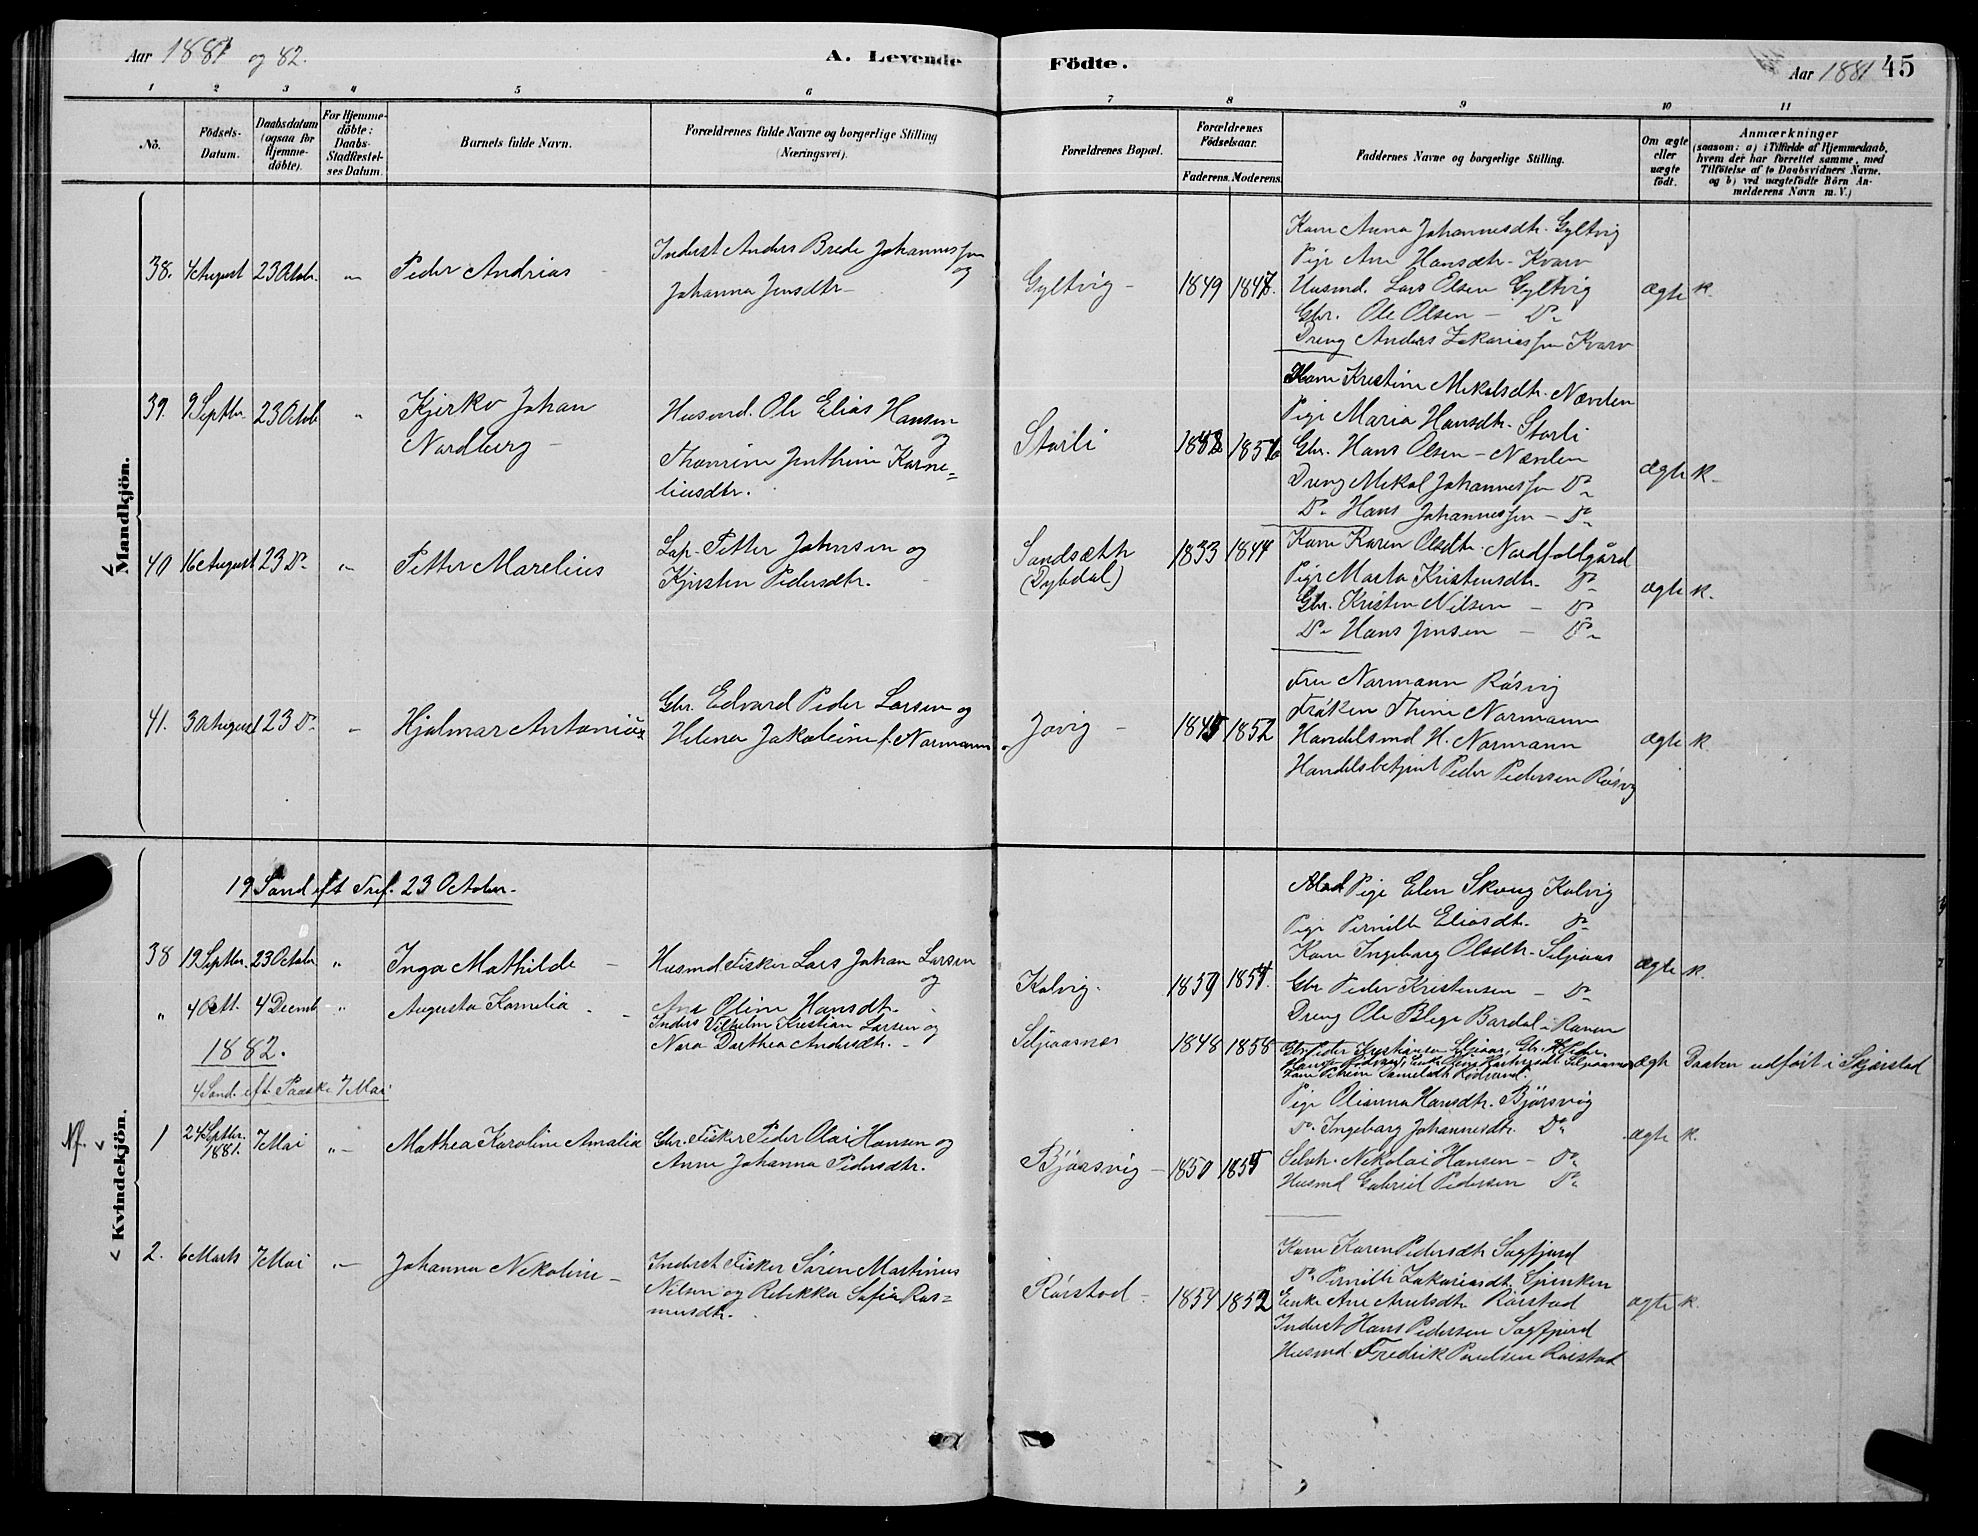 Aar 1881 og 82.
A. Levende Födte.
Aar 1881 45
1 2 3 4 5 6 7 8 9 10 11
Nö.
Födsels-Datum.
Daabsdatum (ogsaa for Hjemme-döbte).
For Hjemme-döbte: Daabs-Stadfæstel-ses Datum.
Barnets fulde Navn.
Forældrenes fulde Navne og borgerlige Stilling (Næringsvei).
Forældrenes Bopæl.
Forældrenes Födselsaar.
Faderens. Moderens.
Faddernes Navne og borgerlige Stilling.
Om ægte eller uægte födt.
Anmærkninger
(saasom: a) i Tilfælde af Hjemmedaab,
hvem der har forrettet samme, med
Tilföielse af to Daabsvidners Navne.
og b) ved uægtefödte Börn An-
melderens Navn m. V.)
Mandkjön.
38. 4 August 23 Octobr. " Peder Andrias
Inderst Anders Brede Johannessen og
Johanna Jensdtr.
Gyltvig - 1849 1847.
Kone Anna Johannesdtr. Gyltvig
Pige Ane Hansdtr. Kvarv
Husmd. Lars Olsen Gyltvig
Gbr. Ole Olsen - Do
Dreng Anders Zakariassen Kvarv
ægte k.
39. 9 Septbr. 23 Octob " Kjerko Johan
Nordberg -
Husmd. Ole Elias Hansen
og
Thomine Jenthine Karne=
liusdtr.
Storli 1858 1856
Kone Kristine Mikalsdtr. Nævelen
Pige Maria Hansdtr. Storli
Gbr. Hans Olsen - Nævelen
Dreng Mikal Johannessen Do
Do Hans Johannessen - Do
ægte k.
40 16 August 23 Do " Petter Marelius
Lap. Petter Johnsen og
Kjersten Pedersdtr.
Sandsæth
(Dybdal)
1833 1844
Kone Karen Olsdtr. Nordfoldgård
Pige Marta Kristensdtr. Do
Gbr. Kristen Nilsen - Do
Do Hans Jensen - Do
ægte k.
41. 30 August 23 Do " Hjalmar Antonius
Gbr. Edvard Peder Larsen og
Helena Jakobine f. Normann
Jovig - 1845 1852
Fru Normann Rösvig
Fröken Thine Normann
Handelsmd H. Normann
Handelsbetjent Peder Pedersen Rösvig
ægte k.
Kvindekjön.
19 Sönd eft Tref. 23 October.
38 19 Septbr. 23 Octobr " Inga Mathilde -
Husmd Fisker Lars Johan Larsen
og
Ane Oline Hansdtr.
Kalvig. 1859 1854.
Pige Elen Skoug Kalvig
Pige Pernille Eliasdtr. Do
Kone Ingeborg Olsdtr. Seljeaas
Gbr Peder Kristensen - Do
Dreng Ole Blege Bardal i Ranen
ægte k.
" 4 Octb. 4 Decemb " Augusta Kornelia
Inders Vilhelm Kristian Larsen og
Nora Darthea Andersdtr. -
Seljeaasnes 1848 1858
ægte Daaben udfört i Skjerstad
1882.
4 Sönd. eft. Paaske 7 Mai
Nf. 1 24 Septbr. 1881. 7 Mai " Mathea Karoline Amalia
Gbr. Fisker Peder Olai Hansen og
Anne Johanna Pedersdtr.
Björsvig - 1850 1854
Pige Olianna Hansdtr. Bjørsvig
Do Ingeborg Johannesdtr. Do
Selvh. Nikolai Hansen - Do
Husmd Gabriel Pedersen Do
ægte k.
2. 6 Marts 7 Mai " Johanna Nikoline -
Inderst Fisker Sören Martinus
Nilsen og Rebekka Sofia Ras=
musdtr.
Rörstad - 1854 1852
Kone Karen Pedersdtr Sagfjord
Do Pernille Zakariasdtr.
Enke Ane Arntsdtr Rörstad
Inderst Hans Pedersen Sagfjord
Husmd. Fredrik Paulsen Rörstad
ægte k.